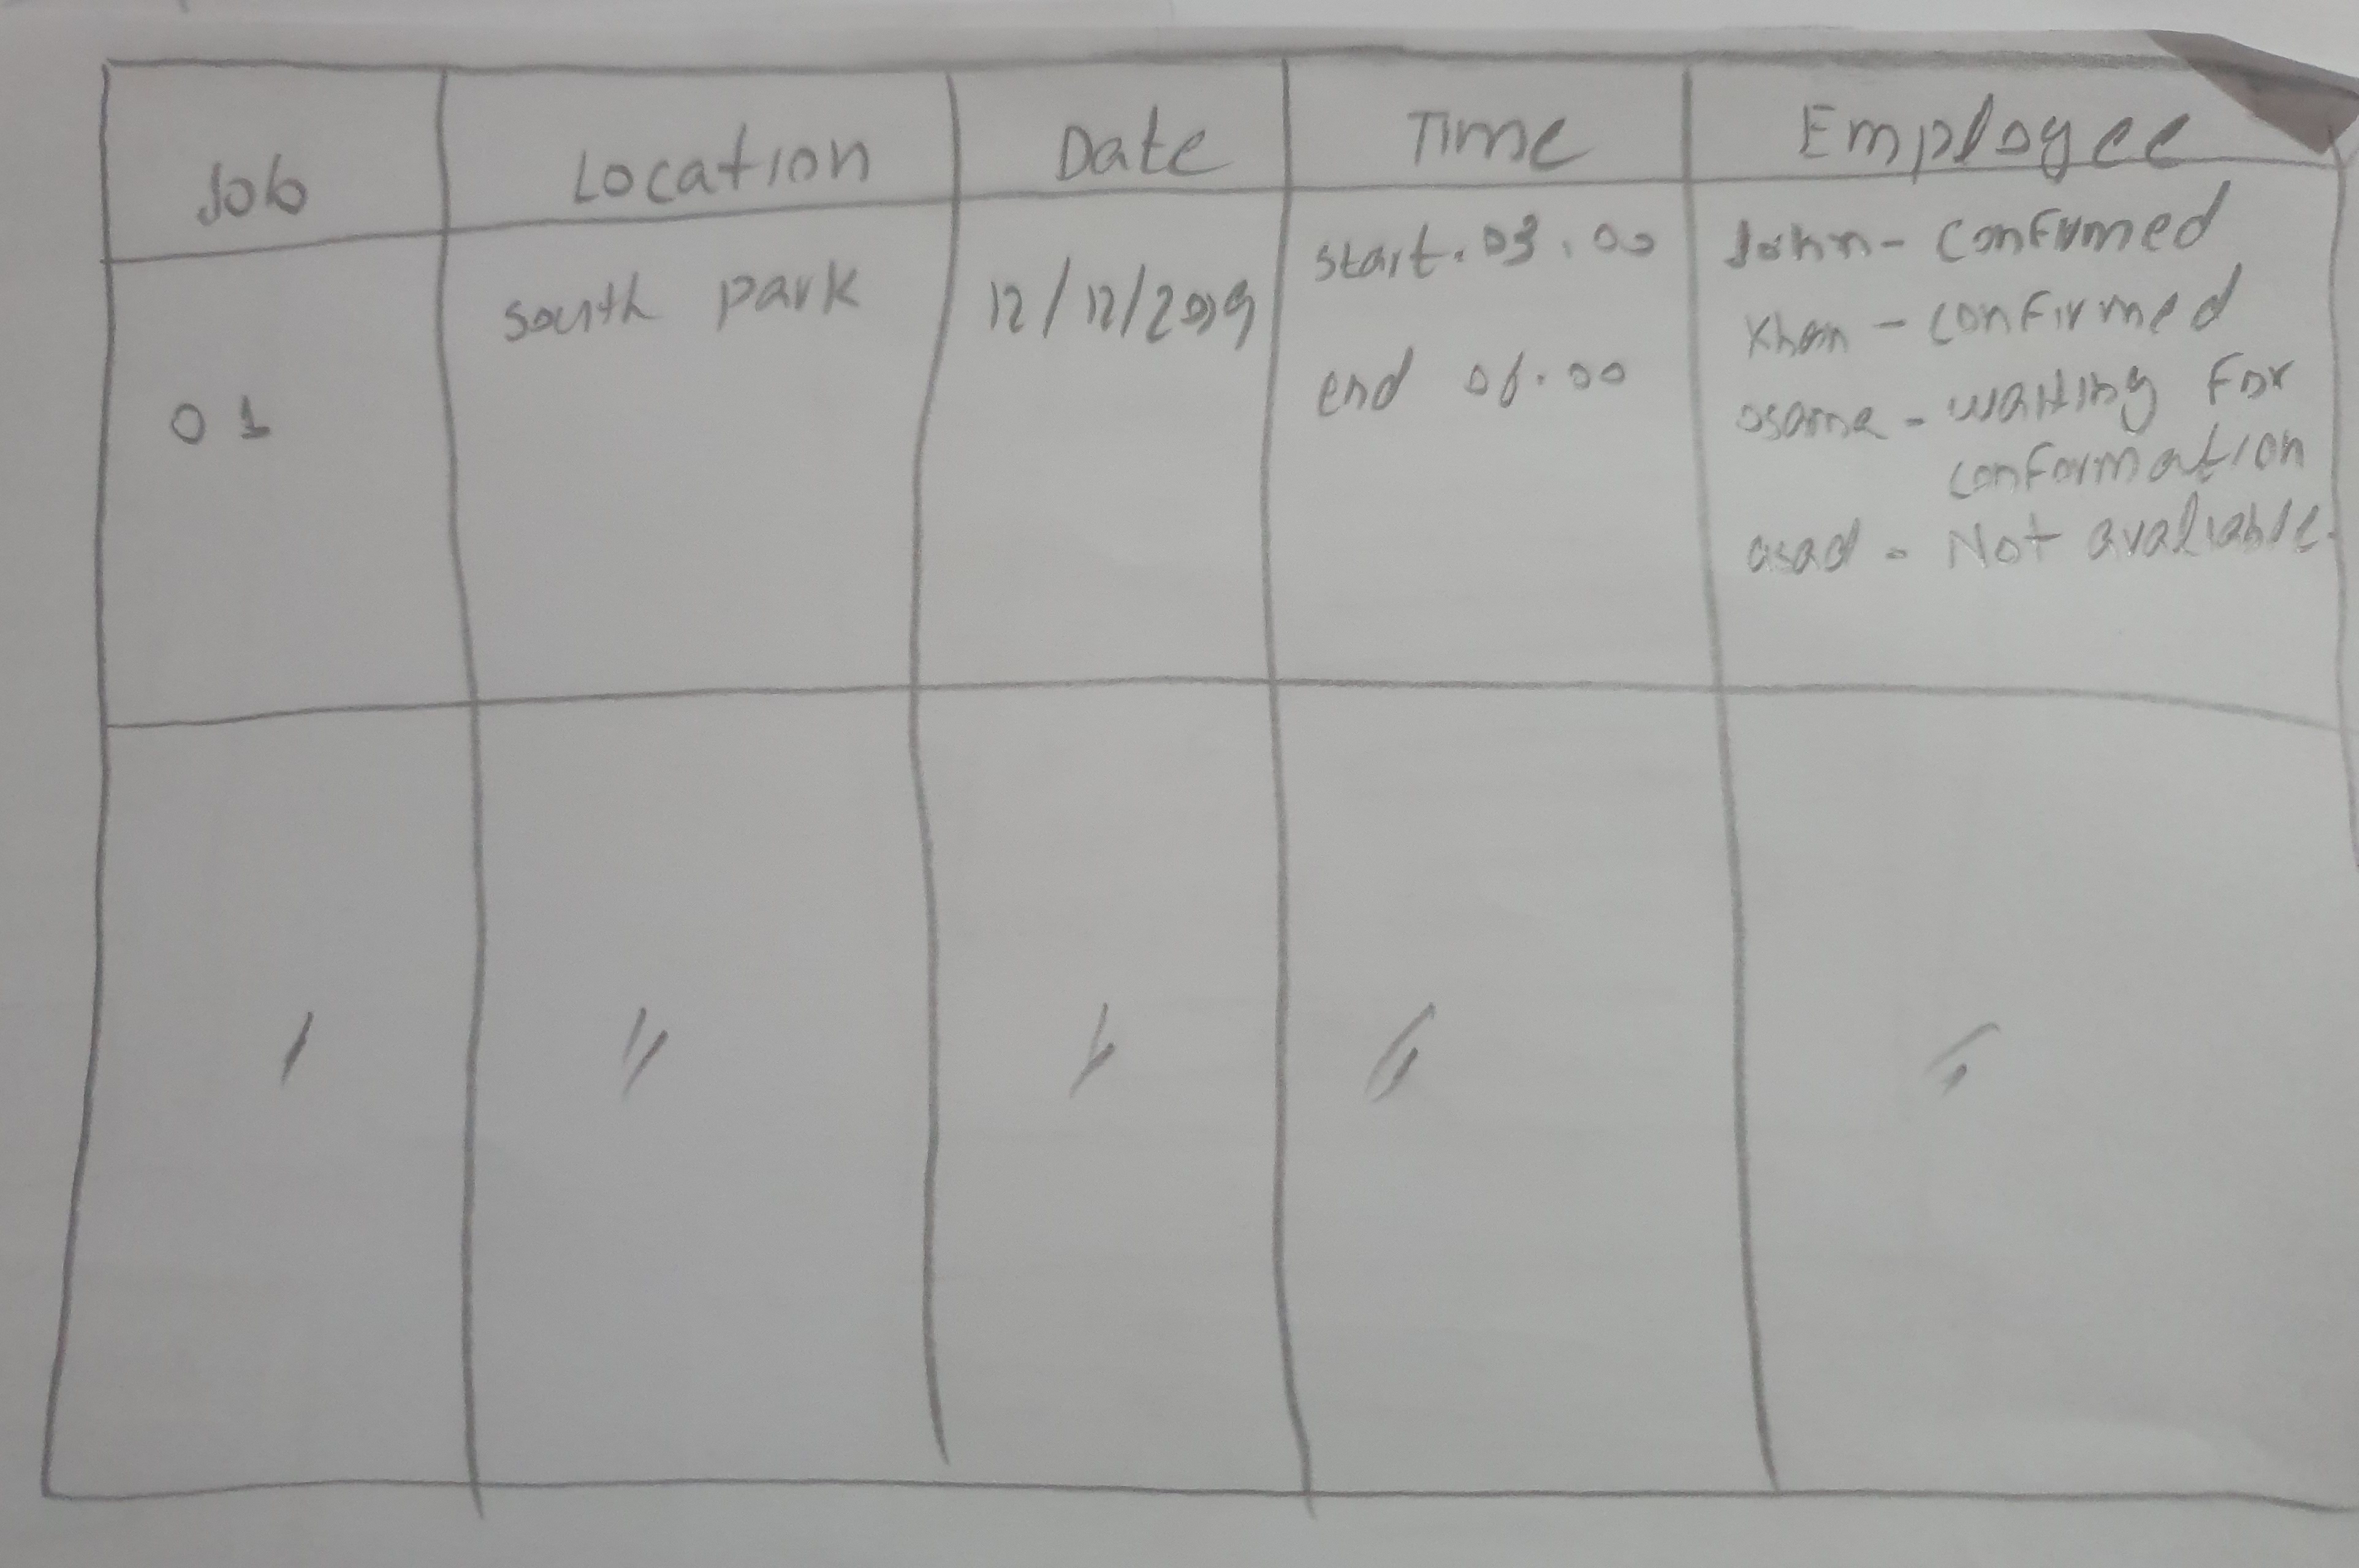 Job Location Date Time Employee
01
south park
12/12/2019
start. 03.00
end 06.00
John - confirmed
Khan - confirmed
osama - waiting for
conformation
asad - Not avaliable.